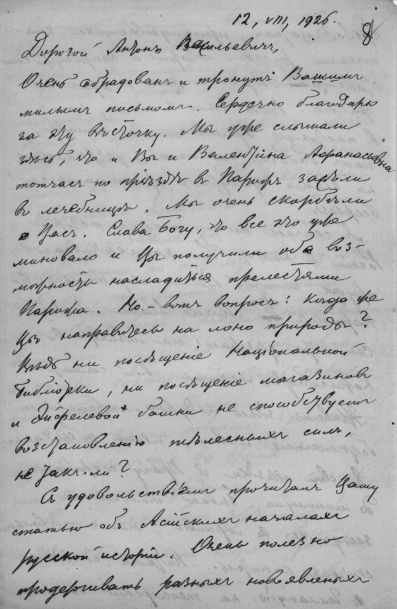 12, VIII, 1926.
8
Дорогой Антонъ Васильевичъ,
Очень обрадованъ и тронутъ Вашимъ
милымъ письмомъ. Сердечно благодарю
за эту вѣсточку. Мы уже слыхали
здѣсь, что и Вы и Валентина Афанасьевна
тотчасъ по пріѣздѣ въ Парижъ засѣли
въ лечебницы. Мы очень скорбѣли
о Васъ. Слава Богу, что все это уже
миновало и Вы получили оба воз-
можность насладиться прелестями
Парижа. Но – вотъ вопросъ: когда же
Вы направитесь на лоно природы?
Вѣдь ни посѣщеніе Національной
Библіотеки, ни посѣщеніе магазиновъ
и Эйфелевой башни не способствуетъ
возстановленію тѣлесныхъ силъ,
не такъ-ли?
Съ удовольствіемъ прочиталъ Вашу
статью объ Асійскихъ началахъ
русской исторіи. Очень полезно
продергивать разныхъ новоявленныхъ